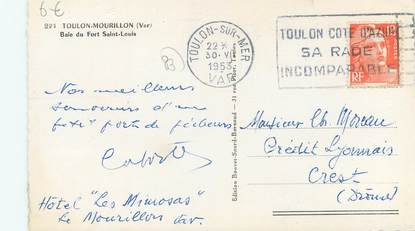 6-€
221 TOULON-MOURILLON (Var)
Baie du Fort Saint-Louis
83
TOULON-SUR-MER
22 H
30-VI
1953
VAR
TOULON COTE D'AZUR
SA RADE
INCOMPARABLE
RF
Nos meilleurs
souvenirs d'un
petit port de pêcheurs.
Hôtel "Les Mimosas"
Le Mourillon Var.
Monsieur Ch Moreau
Crédit Lyonnais
Crest
(Drôme)